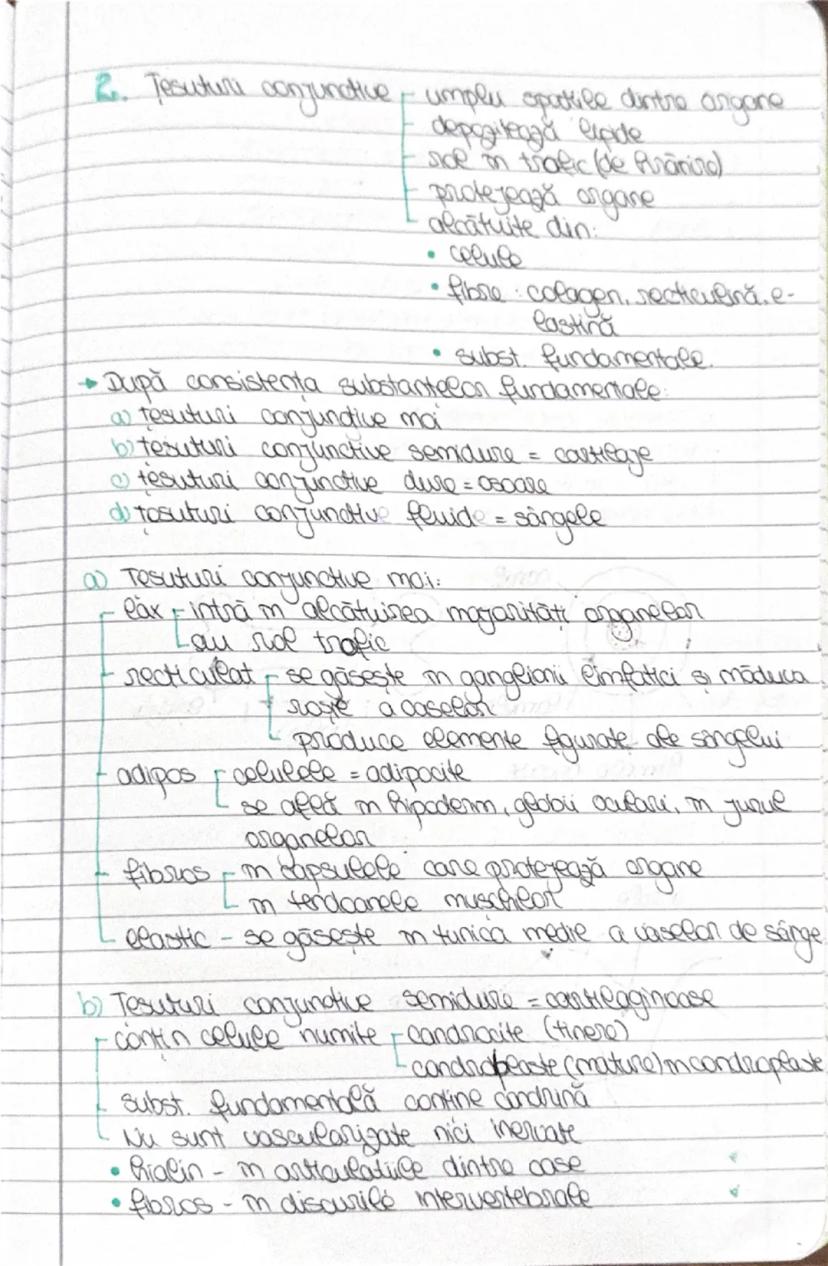 2. Țesuturi conjunctive umplu spațiile dintre organe
depozitează lipide
rol în trofic (de hrănire)
protejează organe
alcătuite din:
• celule
• fibre : colagen, recticulină, e-
lastină
• subst. fundamentale.
→ După consistența substanțelor fundamentale:
a) țesuturi conjunctive moi
b) țesuturi conjunctive semidure = cartilaje
c) țesuturi conjunctive dure = osoase
d) țesuturi conjunctive fluide = sângele
a) Țesuturi conjunctive moi:
lax intră în alcătuirea majorității organelor
au rol trofic
recticulat se găsește în ganglionii limfatici și măduca
roșie a oaselor
produce elemente figurate ale sângelui
adipos celulele = adipocite
se află în hipoderm, globii oculari, în jurul
organelor
fibros în capsulele care protejează organe
în tendoanele mușchilor
elastic - se găsește în tunica medie a vaselor de sânge
b) Țesuturi conjunctive semidure = cartilaginoase
conțin celule numite condriocite (tinere)
condroblaste (mature) în condroplaste
subst. fundamentală conține condrină
Nu sunt vascularizate nici inervate
• hialin - în articulațiile dintre oase
• fibros - în discurile intervertebrale